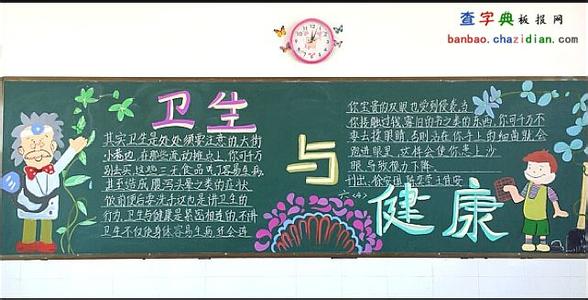 查字典板报网
banbao.chazidian.com
卫生
与
健康
其实卫生是处处须要注意的大街
小巷边,有那些流动摊点上,你可千万
别去买,这些三无食品,叫了容易生病
甚至造成腹泻头晕之类的症状
饭前便后要洗手这也是讲卫生的
行为,卫生与健康是紧密相连的,不讲
卫生不仅使身体容易生病,还会连
你宝贵的双眼也受到侵袭,当
你接触过钱,旧的书之类的东西,你可千万不
要去揉眼睛,否则沾在你手上的细菌就会
跑进眼里,这样会使你患上沙
眼,导致视力下降。
刊出:
六<4>